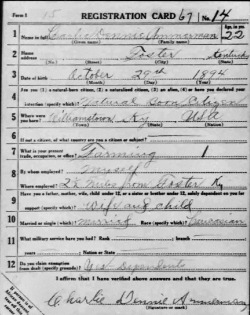 Form 1 15 REGISTRATION CARD 67 No. 14
1 Name in full Charlie Dennie Ammerman Age, in yrs. 22
(Given name) (Family name)
2 Home address Foster Kentucky
(No.) (Street) (City) (State)
3 Date of birth October 29th 1894
(Month) (Day) (Year)
4 Are you (1) a natural-born citizen, (2) a naturalized citizen, (3) an alien, (4) or have you declared your
intention (specify which)? Natural Born Citizen
5 Where were you born? Williamstown Ky USA
(Town) (State) (Nation)
6 If not a citizen, of what country are you a citizen or subject?
7 What is your present trade, occupation, or office? Farming 1
8 By whom employed? Myself
Where employed? 2½ miles from Foster Ky
9 Have you a father, mother, wife, child under 12, or a sister or brother under 12, solely dependent on you for
support (specify which)? Wife and child
10 Married or single (which)? Married Race (specify which)? Caucasian
11 What military service have you had? Rank ; branch
years ; Nation or State
12 Do you claim exemption from draft (specify grounds)? Yes Dependents
I affirm that I have verified above answers and that they are true.
Charlie Dennie Ammerman
(Signature or mark)